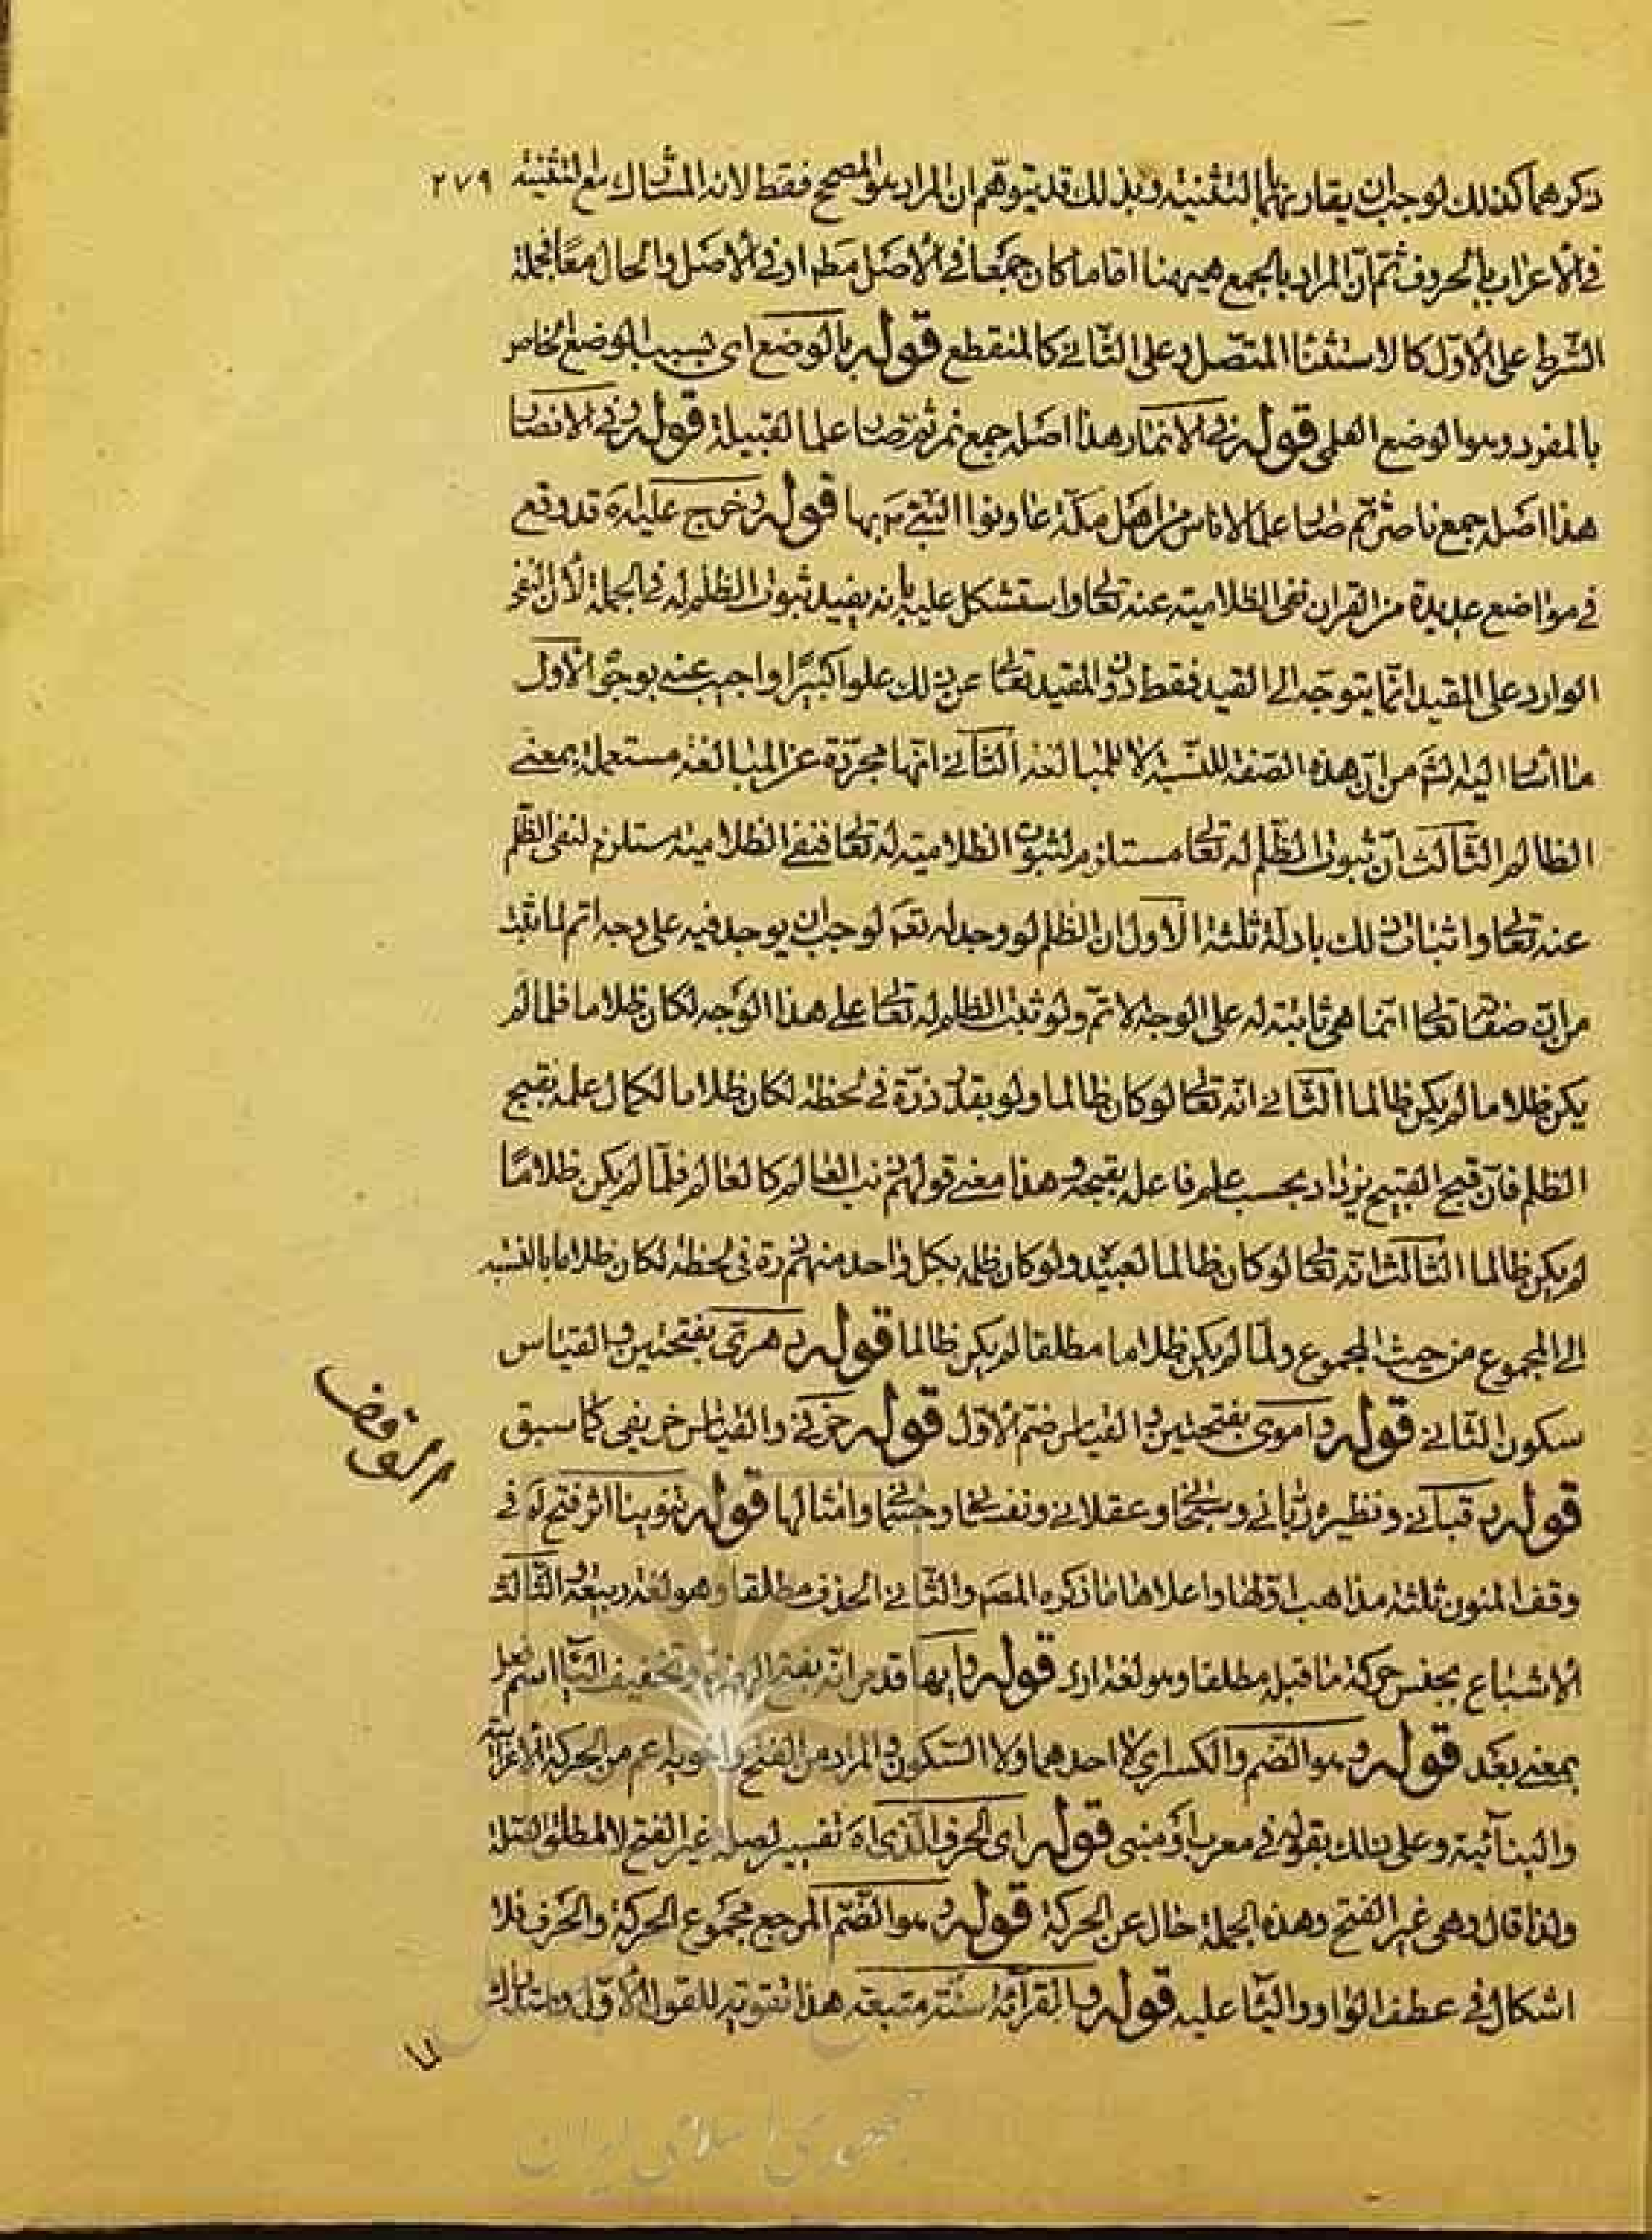 ذكرهما كذلك لوجب ان يقارنهما بالتثنية وبذلك قد يتوهم ان المراد هو المصحح فقط لانه المشارك مع التثنية ٢٧٩
في الاعراب بالحروف ثم ان المراد بالجمع هيهنا اما ما كان جمعا في الاصل او في الاصل والحال معا فجملة
الشرط على الاول كالاستثناء المتصل وعلى الثاني كالمنقطع قوله بالوضع اي بسبب الوضع الخاص
بالمفرد وهو الوضع العلمي قوله في الانمار هذا اصله جمع نمر ثم صار علما لقبيلة قوله وفي الانصار
هذا اصله جمع ناصر ثم صار علما لاناس من اهل مكة عاونوا النبي بها قوله وخرج عليه اه قد وقع
في مواضع عديدة من القران نفي الظلامية عنه تعالى واستشكل عليه بانه يفيد ثبوت الظلم له في الجملة لان النفي
الوارد على المقيد انما يتوجه الى القيد فقط دون المقيد تعالى عن ذلك علوا كبيرا واجيب عنه بوجوه الاول
ما اشار اليه الشم من ان هذه الصفة للنسبة لا للمبالغة الثاني انها مجردة عن المبالغة مستعملة بمعنى
الظالم الثالث ان ثبوت الظلم له تعالى مستلزم لثبوت الظلامية له تعالى فنفي الظلامية مستلزم لنفي الظلم
عنه تعالى واثبات ذلك بادلة ثلثة الاول ان الظلم لو وجد له تعم لوجب ان يوجد فيه على وجه اتم لما ثبت
من ان صفاته تعالى انما هي ثابتة له على الوجه الاتم ولو ثبت الظلم له تعالى على هذا الوجه لكان ظلاما فلما لم
يكن ظلاما لم يكن ظالما الثاني انه تعالى لو كان ظالما ولو بقدر ذرة في لحظة لكان ظلاما لكمال علمه بقبح
الظلم فان قبح القبيح يزداد بحسب علم فاعله بقبحه وهذا معنى قولهم ذنب العالم كالعالم فلما لم يكن ظلاما
لم يكن ظالما الثالث انه تعالى لو كان ظالما لعبيده ولو كان ظلمه بكل واحد منهم ذرة في لحظة لكان ظلاما بالنسبة
الى المجموع من حيث المجموع ولما لم يكن ظلاما مطلقا لم يكن ظالما قوله دهري بفتحتين والقياس
سكون الثاني قوله واموي بفتحتين والقياس ضم الاول قوله خرفي والقياس خريفي كما سبق
الوقف
قوله وقباني ونظيره رباني وسبحاني وعقلاني ونفساني وجسماني وامثالها قوله تنوينا اثر فتح اه في
وقف المنون ثلثة مذاهب اولها واعلاها ما ذكره المصم والثاني الحذف مطلقا وهو لغة ربيعة والثالث
الاشباع بجنس حركة ما قبله مطلقا وهو لغة ازد قوله وايها قد مر انه بفتح الهمزة وتخفيف الياء اسم فعل
بمعنى بعد قوله وهو الضم والكسر اي لا احدهما ولا السكون والمراد من الفتح واخويه اعم من الحركة الاعرابية
والبنائية وعلى ذلك بقوله في معرب او مبني قوله اي الحرف الذي اه تفسير لصلة غير الفتح لا لمطلق الصلة
ولذا قال وهي غير الفتح وهذه الجملة حال عن الحركة قوله وهو الضم المرجع مجموع الحركة والحرف فلا
اشكال في عطف الواو والياء عليه قوله والقرائة سنة متبعة هذا تقوية للقول الاول
لما
جمهوری اسلامی ایران